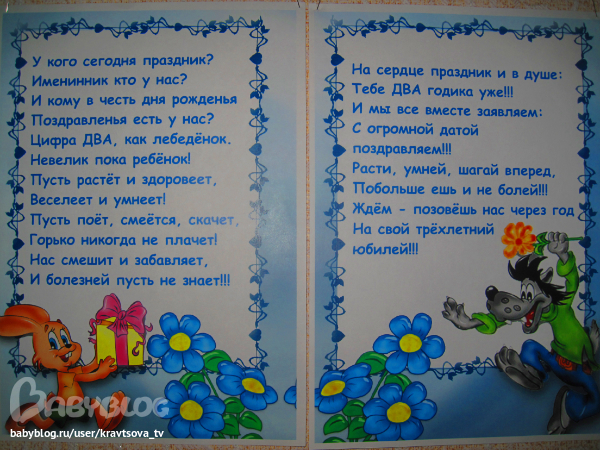 У кого сегодня праздник?
Именинник кто у нас?
И кому в честь дня рожденья
Поздравленья есть у нас?
Цифра ДВА, как лебедёнок.
Невелик пока ребёнок!
Пусть растёт и здоровеет,
Веселеет и умнеет!
Пусть поёт, смеётся, скачет,
Горько никогда не плачет!
Нас смешит и забавляет,
И болезней пусть не знает!!!
На сердце праздник и в душе:
Тебе ДВА годика уже!!!
И мы все вместе заявляем:
С огромной датой
поздравляем!!!
Расти, умней, шагай вперед,
Побольше ешь и не болей!!!
Ждём - позовёшь нас через год
На свой трёхлетний
юбилей!!!
BABYBLOG
babyblog.ru/user/kravtsova_tv